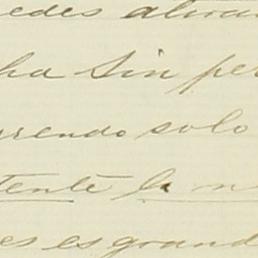 edes
ha sin per
rrendo solo
tente la n
es es grand